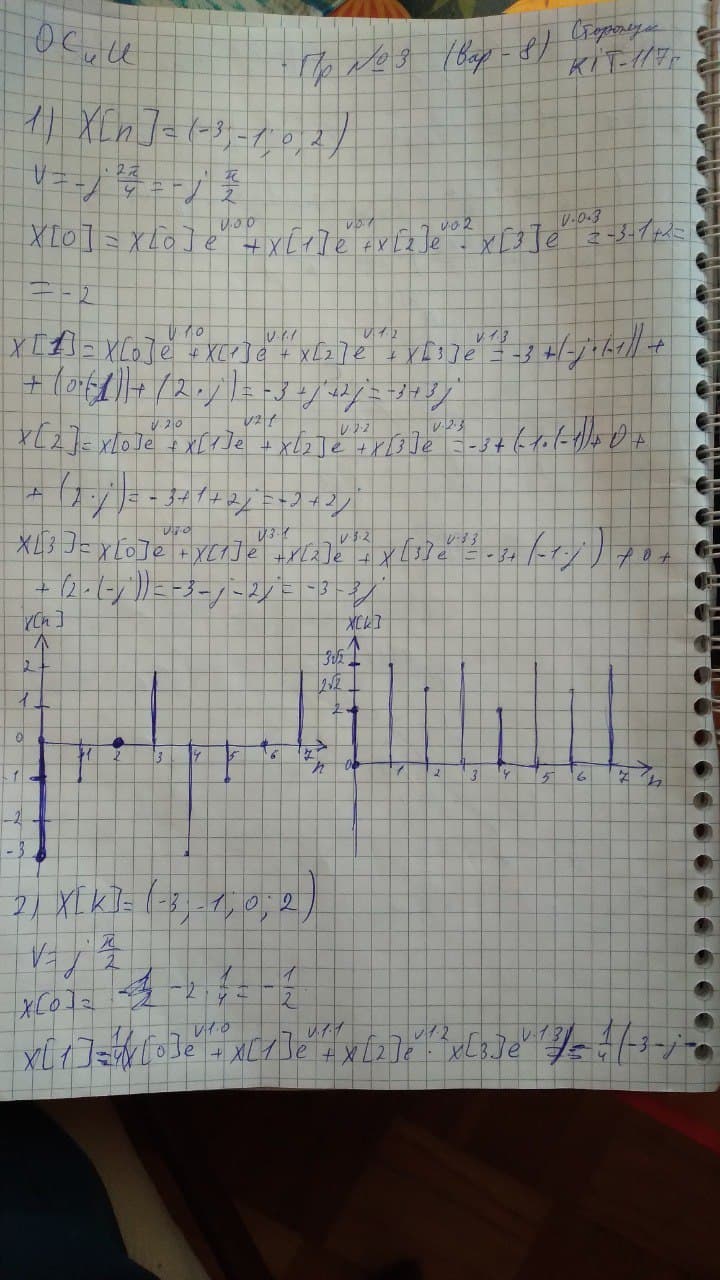 ОС и И Пр №3 (Вар-8)
КІТ-117г
1) X[n] = (-3; -1; 0; 2)
V = -j 2π/4 = -j π/2
X[0] = x[0]e^{v·0·0} + x[1]e^{v·0·1} + x[2]e^{v·0·2} · x[3]e^{v·0·3} = -3-1+2 =
= -2
X[1] = x[0]e^{v·1·0} + x[1]e^{v·1·1} + x[2]e^{v·1·2} + x[3]e^{v·1·3} = -3 + (-j·(-1)) +
+ (0·(-1)) + (2·j) = -3+j+2j = -3+3j
X[2] = x[0]e^{v·2·0} + x[1]e^{v·2·1} + x[2]e^{v·2·2} + x[3]e^{v·2·3} = -3 + (-1·(-1)) + 0 +
+ (2·j) = -3+1+2j = -2+2j
X[3] = x[0]e^{v·3·0} + x[1]e^{v·3·1} + x[2]e^{v·3·2} + x[3]e^{v·3·3} = -3 + (-1·j) + 0 +
+ (2·(-j)) = -3-j-2j = -3-3j
x[n] X[k]
2 3√2
1 2√2
2
0 1 2 3 4 5 6 7 n 0 1 2 3 4 5 6 7 n
-1
-2
-3
2) X[k] = (-3; -1; 0; 2)
V = j π/2
x[0] = -2·1/4 = -1/2
x[1] = 1/4(x[0]e^{v·1·0} + x[1]e^{v·1·1} + x[2]e^{v·1·2} · x[3]e^{v·1·3}) = 1/4(-3-j-